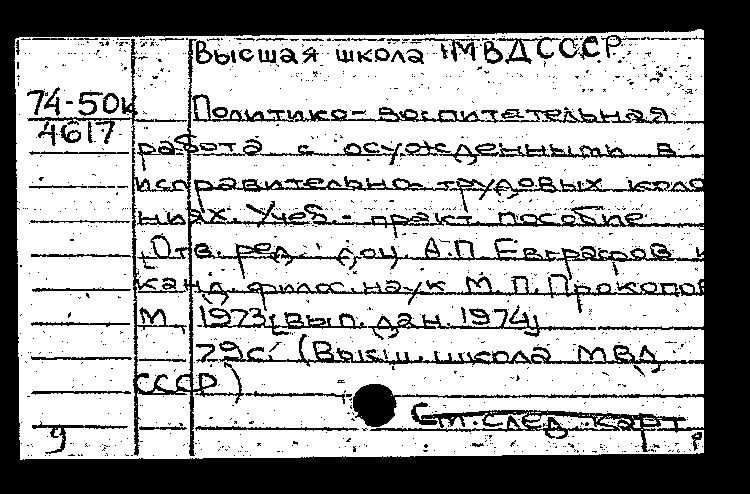 Высшая школа МВД СССР
74-50к
4617
Политико-воспитательная
работа с осужденными в
исправительно-трудовых коло
ниях. Учеб.-практ. пособие
[Отв. ред.: доц. А.П. Евграфов и
канд. филос. наук М. П. Прокопов
М., 1973 [вып. дан. 1974]
79с. (Высш. школа МВД
СССР)
См. след. карт
9